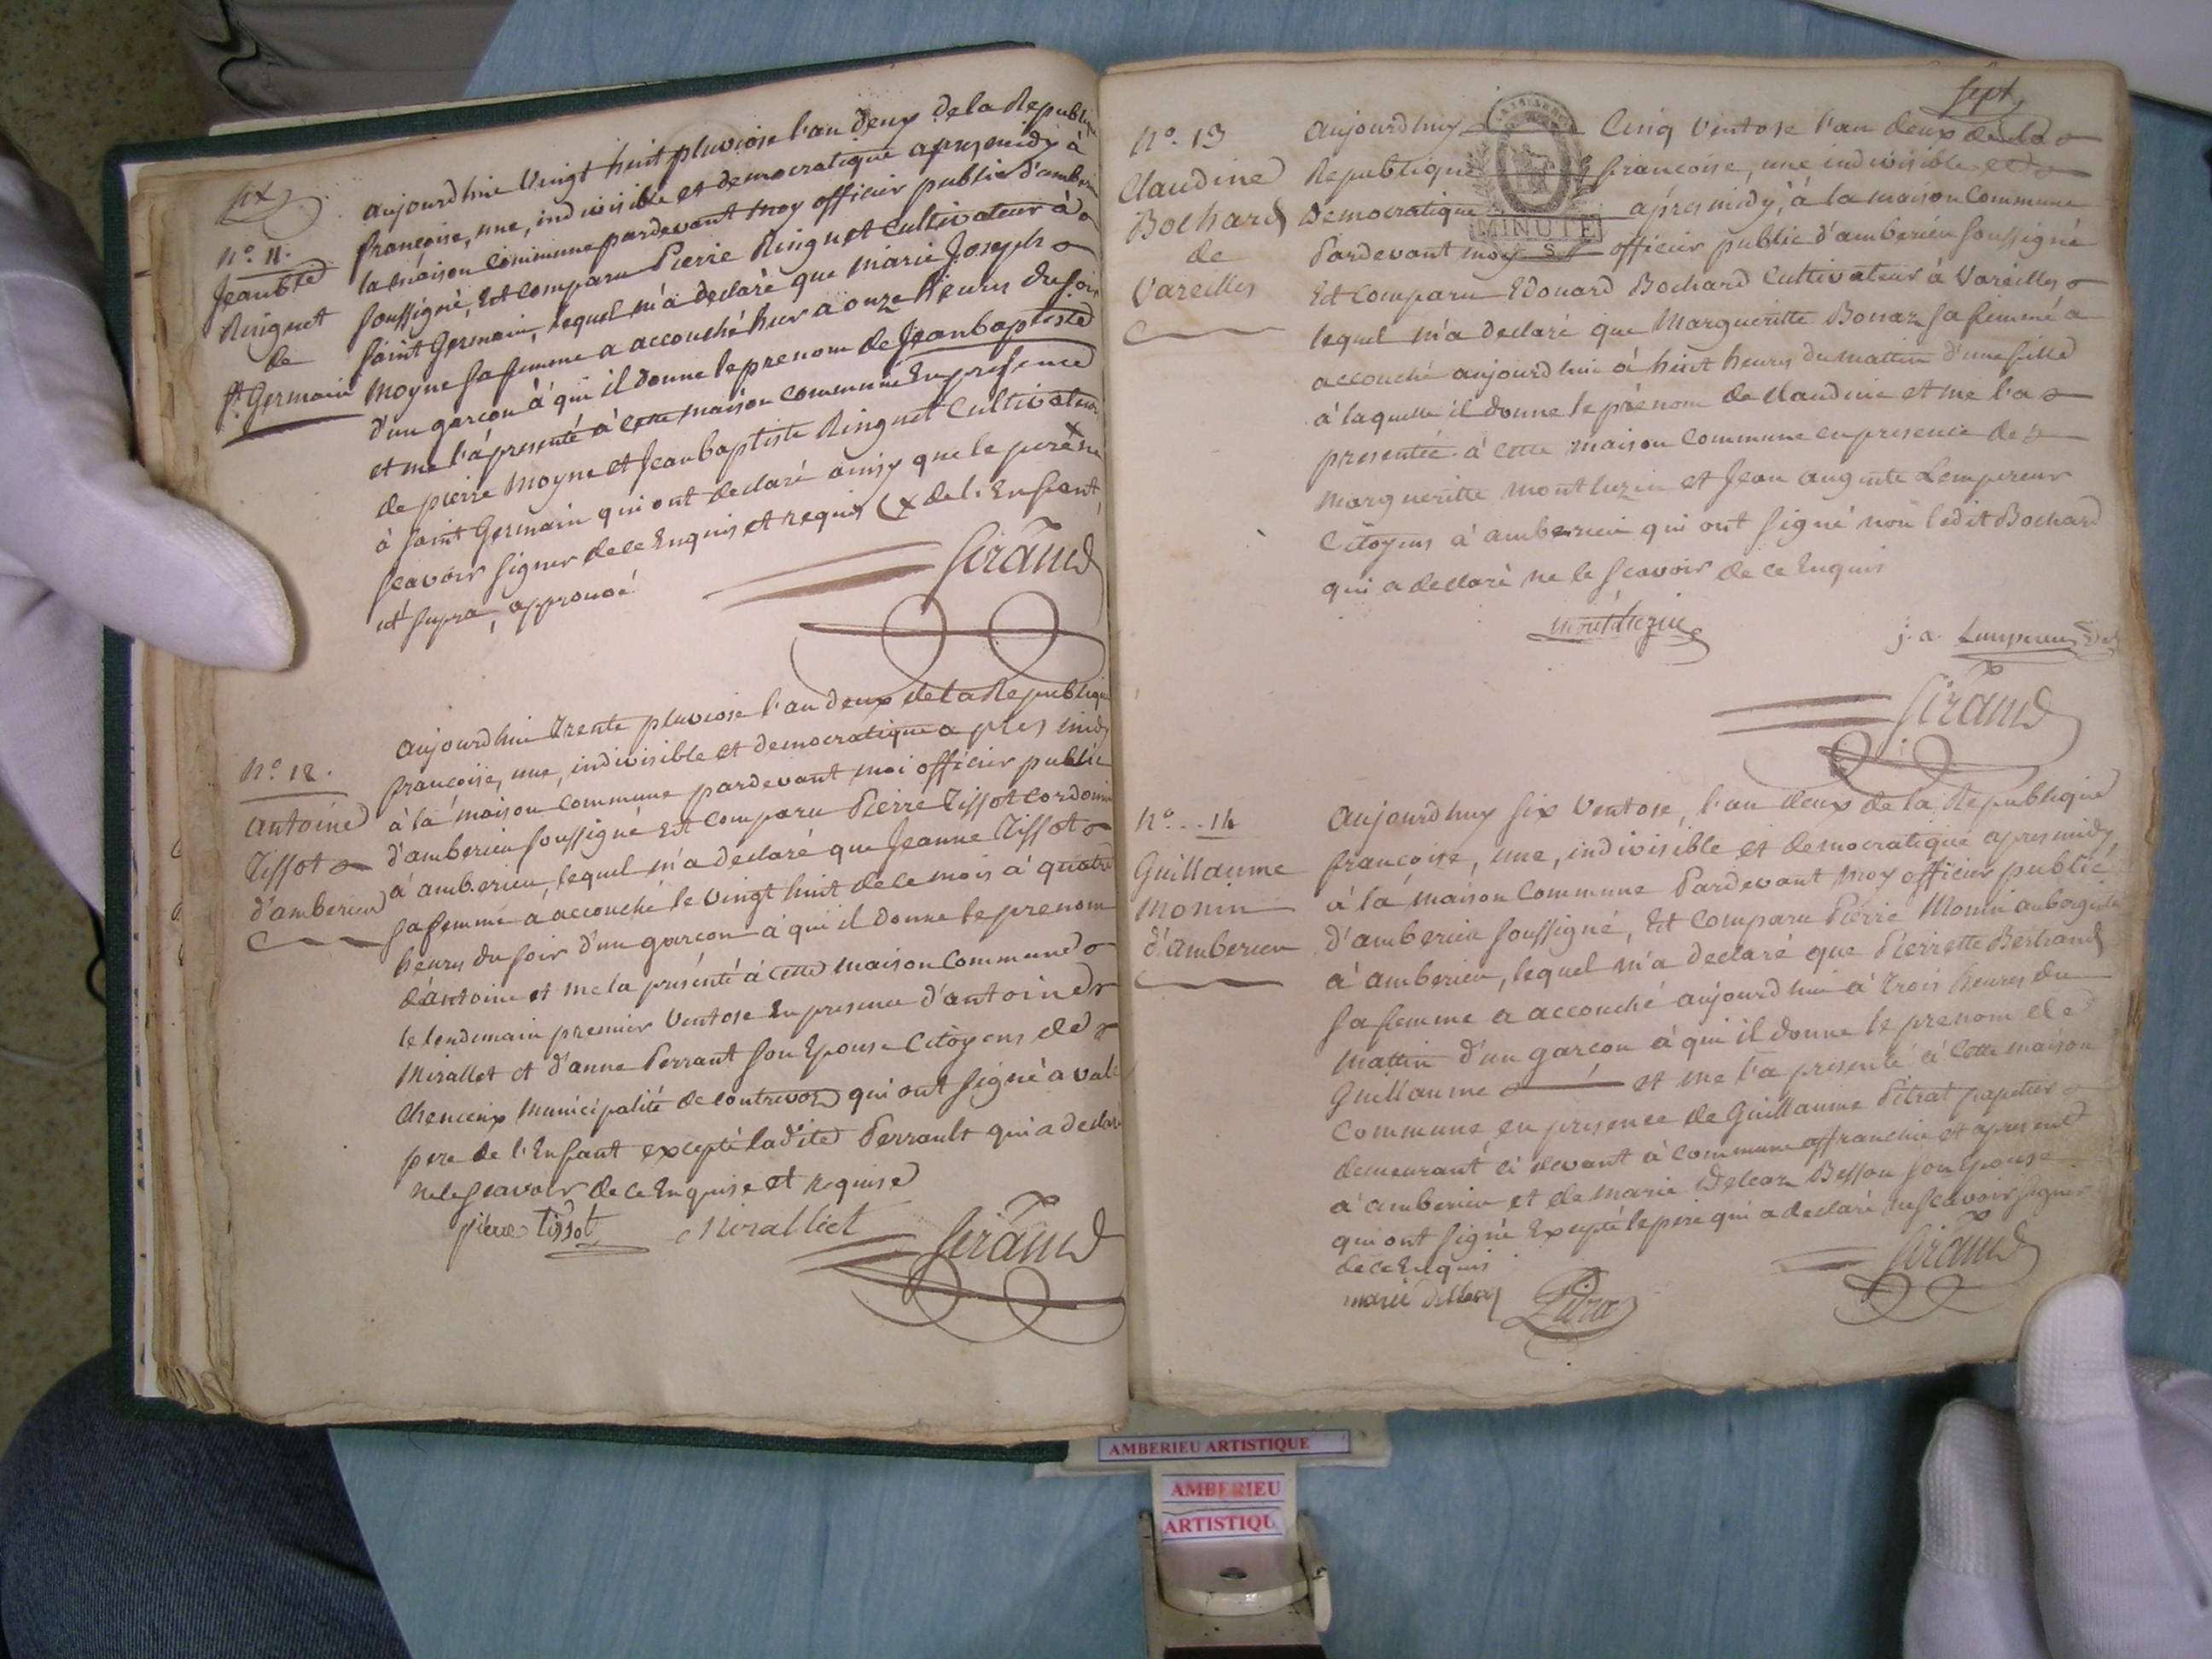 six
N.o 11.
Jeanbte
Ringuet
de
st Germain
aujourdhui Vingt huit pluviose l'an deux de la Republique
françoise, une, indivisible et democratique apres midy à
la maison commune pardevant moy officier public d'amberieu
soussigné, Est comparu Pierre Ringuet Cultivateur à
saint Germain, lequel m'a declaré que marie Joseph
moyne sa femme a accouché hier a onze heures du soir
d'un garcon à qui il donne le prenom de Jeanbaptiste
et me l'a presenté à cette maison commune En presence
de pierre moyne et Jeanbaptiste Ringuet Cultivateurs
à saint Germain qui ont declaré ainsy que le pere x ne
scavoir signer de ce Enquis et requis (x de l'Enfant
ut supra, approuvé
Giraud
N.o 12.
antoine
Tissot
d'amberieu
aujourdhui Trente pluviose l'an deux de la Republique
françoise, une, indivisible et democratique a pres midy
à la maison commune pardevant moi officier public
d'amberieu soussigné Est comparu Pierre Tissot cordonnier
a' amberieu, lequel m'a declaré que Jeanne Tissot
sa femme a accouché le vingt huit de ce mois à quatre
heures du soir d'un garcon à qui il donne le prenom
d'antoine et me la présenté à cette maison Commune
le lendemain premier Ventose En presence d'antoine
Mirallet et d'anne Perrant son Epouse Citoyens de
municipalité de qui ont signé a
pere de l'Enfant excepté ladite Perrault qui a declaré
ne le scavoir de ce Enquise et requise
pierre tissot
Miralliet
Giraud
sept
N.o 13
Claudine
Bochard
de
Vareilles
MINUTE
aujourdhuy Cinq Ventose l'an deux de la
Republique françoise, une indivisible et
Democratique après midy, à la maison commune
Pardevant moy officier public d'amberieu soussigné
Est comparu Edouard Bochard Cultivateur à Vareilles
lequel m'a declaré que Margueritte Bonaz sa femme a
accouché aujourdhui à huit heures du mattin d'une fille
à laquelle il donne le prénom de claudine et me l'a
presentée à cette maison commune en presence de
margueritte montluzin et Jean auguste Lempereur
Citoyens à amberieu qui ont signé non ledit Bochard
qui a declaré ne le scavoir de ce Enquis
j. a. Lempereur
Giraud
N.o 14
Guillaume
monin
d'amberieu
Aujourdhuy six Ventose, l'an deux de la Republique
françoise, une, indivisible et democratique apres midy
à la maison commune Pardevant moy officier public
d'amberieu soussigné, Est comparu Pierre Monin aubergiste
a' amberieu, lequel m'a declaré que Pierrette Bertrand
sa femme a accouché aujourdhui à Trois heures du
mattin d'un garçon à qui il donne le prenom de
Guillaume et me l'a presenté à cette maison
Commune en presence de Guillaume Pitrat papetier
demeurant ci devant à commune affranchie et a present
a' amberieu et de marie Besson son Epouse
qui ont signé Excepté le pere qui a declaré ne scavoir signer
de ce Enquis
marie
Giraud
AMBERIEU ARTISTIQUE
AMBERIEU
ARTISTIQU